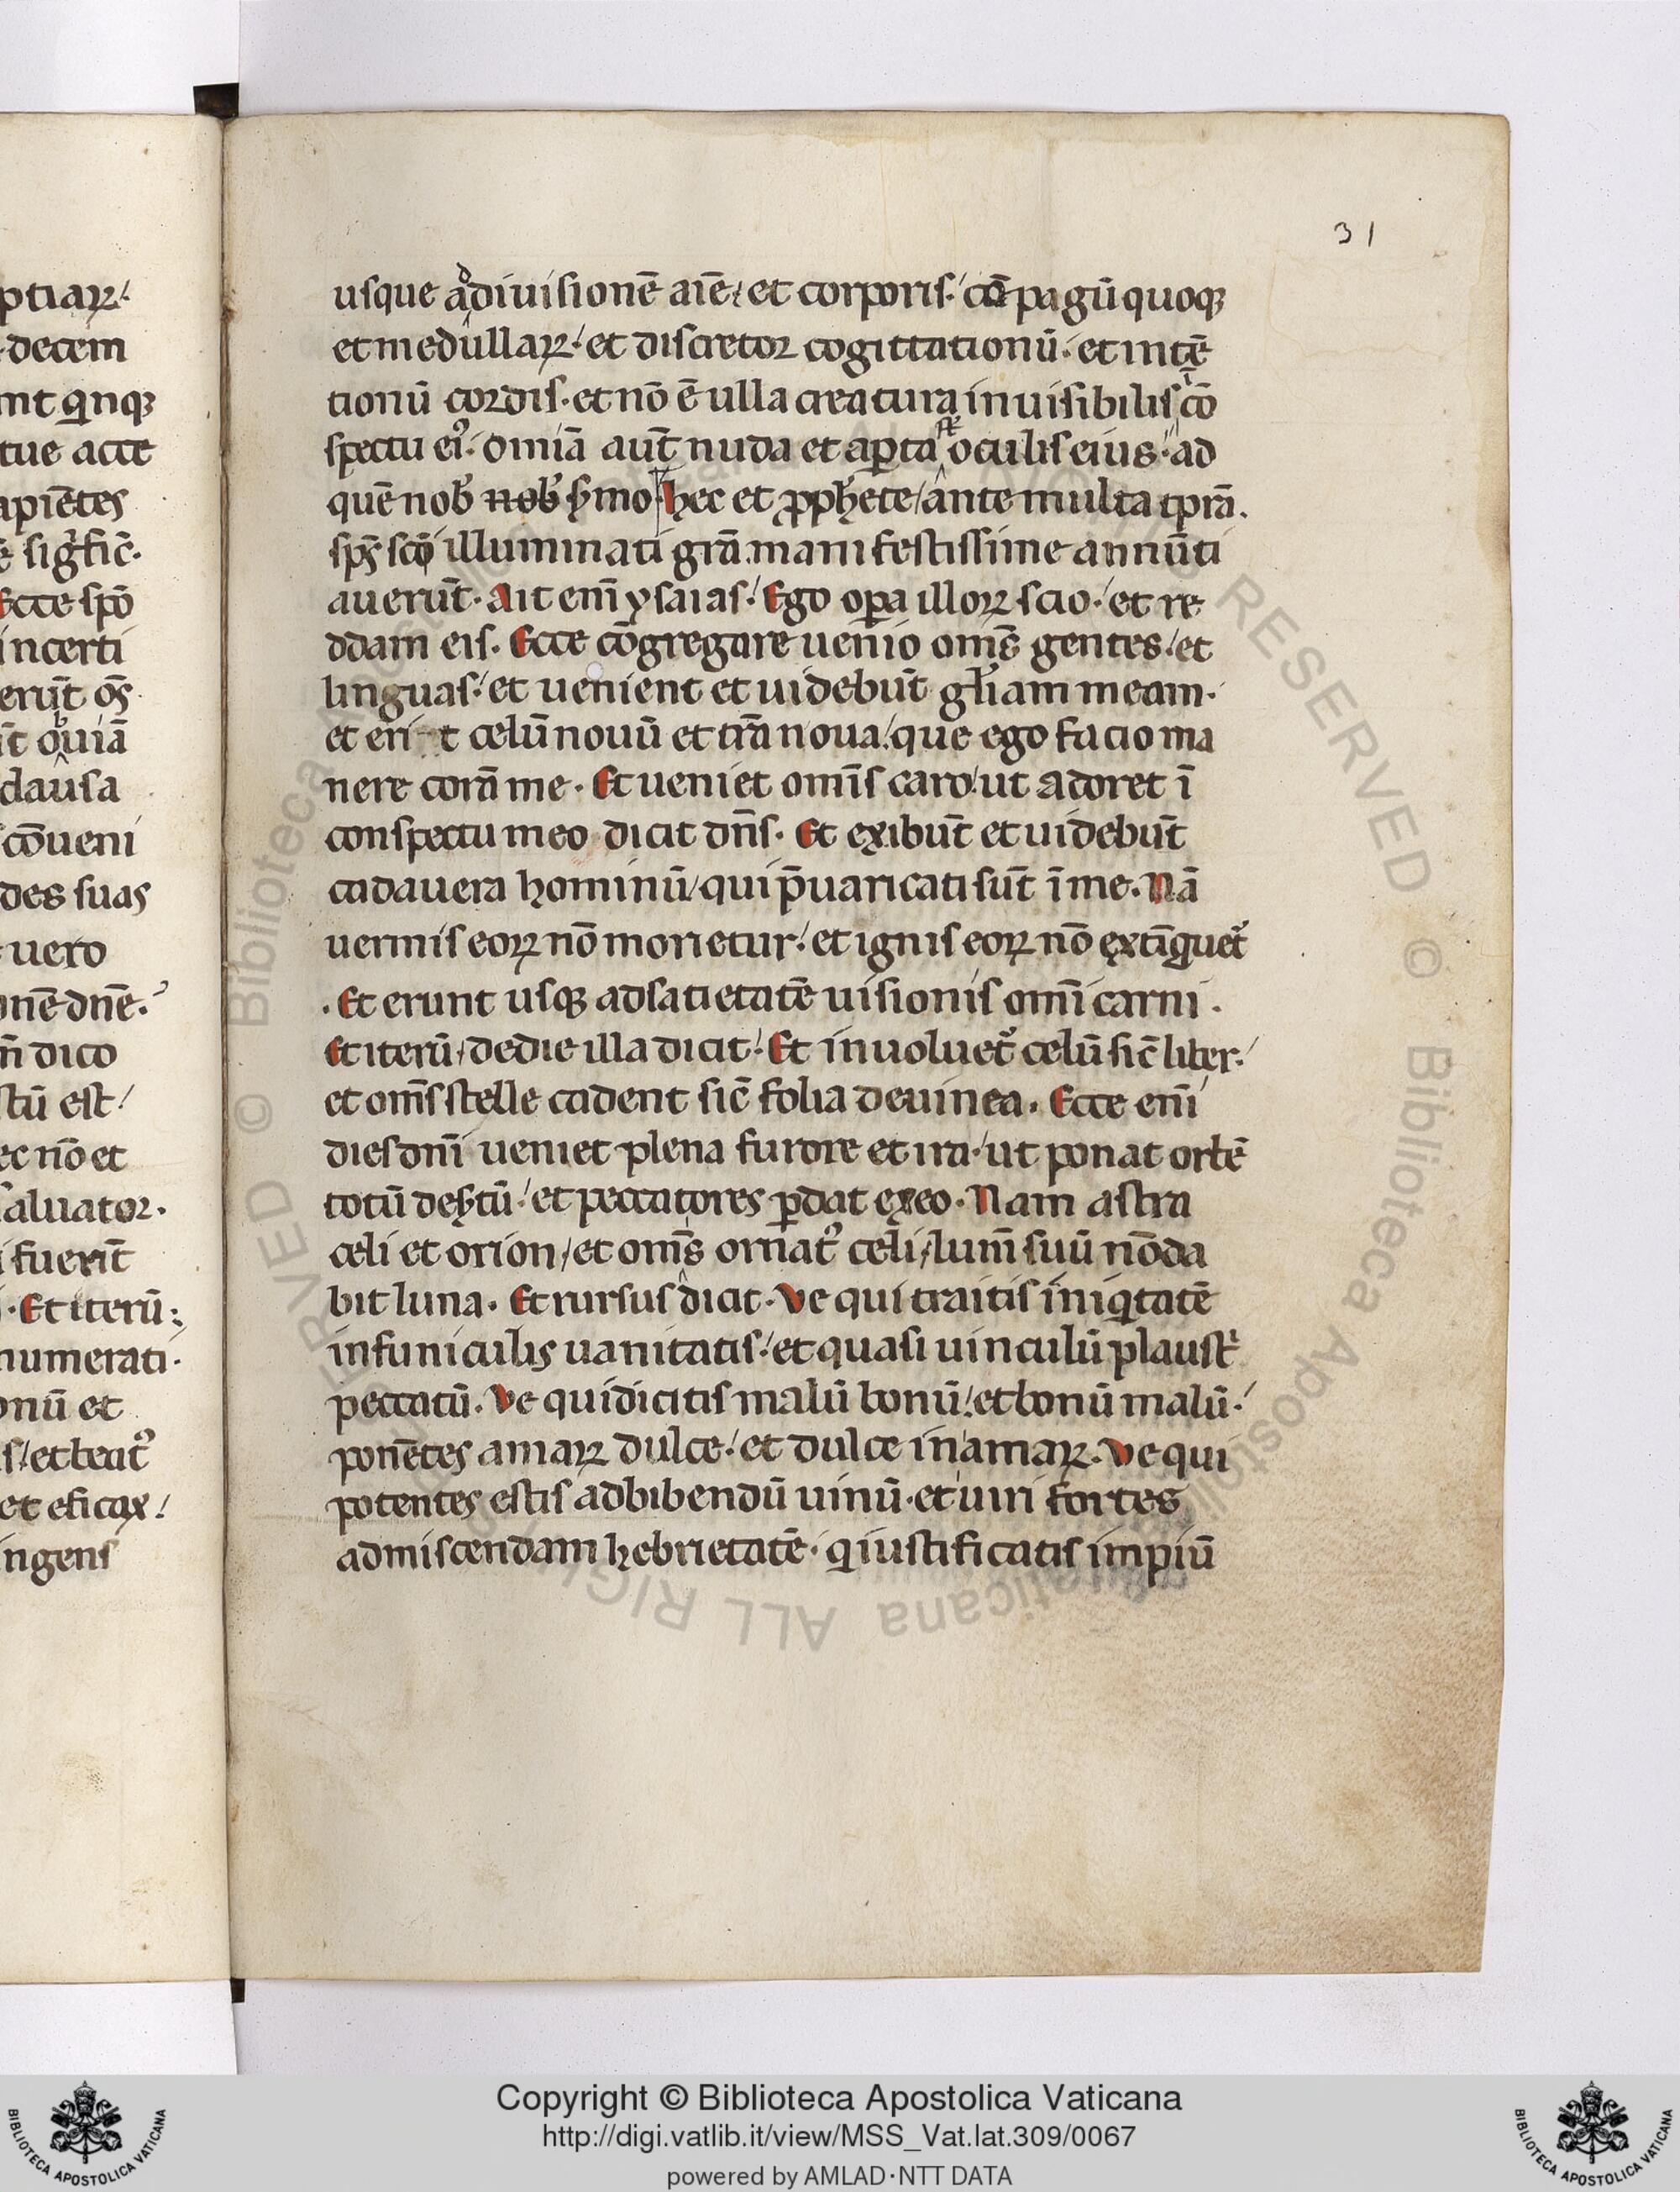 31
ptiaꝝ
decem
nt qnqꝫ
tue acce
apiētes
ē sigfic̄
Ecce spō
incerti
erūt os̄
it quiā
clausa
cōueni
des suas
uero
onē dnē
n̄ dico
tū est
ec nō et
saluator
i fuerit̄
Et iterū
numerati
onū et
s/ et beat᾽
et eficax
ingens
usque ad diuisionē aīe / et corporis · cōpagū quoqꝫ
et medullaꝝ · et discretor cogittationū · et intē
tionū cordis · et nō ē ulla creatura inuisibilis ī cō
spectu ei᾽ · omīa aut̄ nuda et aꝑta st̄ oculis eius · ad
quē nob̄ nob̄ s̄mo · hec et ꝓph̄ete / ante multa tp̄ra ·
sps̄ scī illuminati gr̄a manifestissime annūti
auerūt · Ait enī ysaias · Ego oꝑa illoꝝ scio · et re
ddam eis · Ecce cōgregare uenio om̄s gentes · et
linguas · et uenient et uidebūt gl̄iam meam ·
et eri t celū nouū et trā noua · que ego facio ma
nere corā me · Et ueniet omīs caro · ut adoret ī
conspectu meo dicit dn̄s · Et exibūt et uidebūt
cadauera hominū / qui p̄uaricati sūt ī me · Nā
uermis eoꝝ nō morietur · et ignis eoꝝ nō extīguet᾽
· Et erunt usqꝫ ad satietatē uisionis om̄i carni ·
Et iterū / de die illa dicit · Et inuoluet᾽ celū sic̄ liber ·
et om̄s stelle cadent sic̄ folia de uinea · Ecce enī
dies dnī ueniet plena furore et ira · ut ponat orbē
totū des̄tū · et peccatores ꝑdat ex eo · Nam astra
celi et orion / et om̄s ornat᾽ celi / lum̄ suū nō da
bit luna · Et rursus dicit · Ve qui traitis iniqtatē
in funiculis uanitatis · et quasi uinculū plaustⁱ
peccatū · Ve qui dicitis malū bonū · et bonū malū ·
ponētes amaꝝ dulce · et dulce in amaꝝ · Ve qui
potentes estis ad bibendū uinū · et uiri fortes
ad miscendam hebrietatē · q iustificatis impiū
© Biblioteca Apostolica Vaticana ALL RIGHTS RESERVED
Copyright © Biblioteca Apostolica Vaticana
http://digi.vatlib.it/view/MSS_Vat.lat.309/0067
powered by AMLAD·NTT DATA
BIBLIOTECA APOSTOLICA VATICANA
BIBLIOTECA APOSTOLICA VATICANA